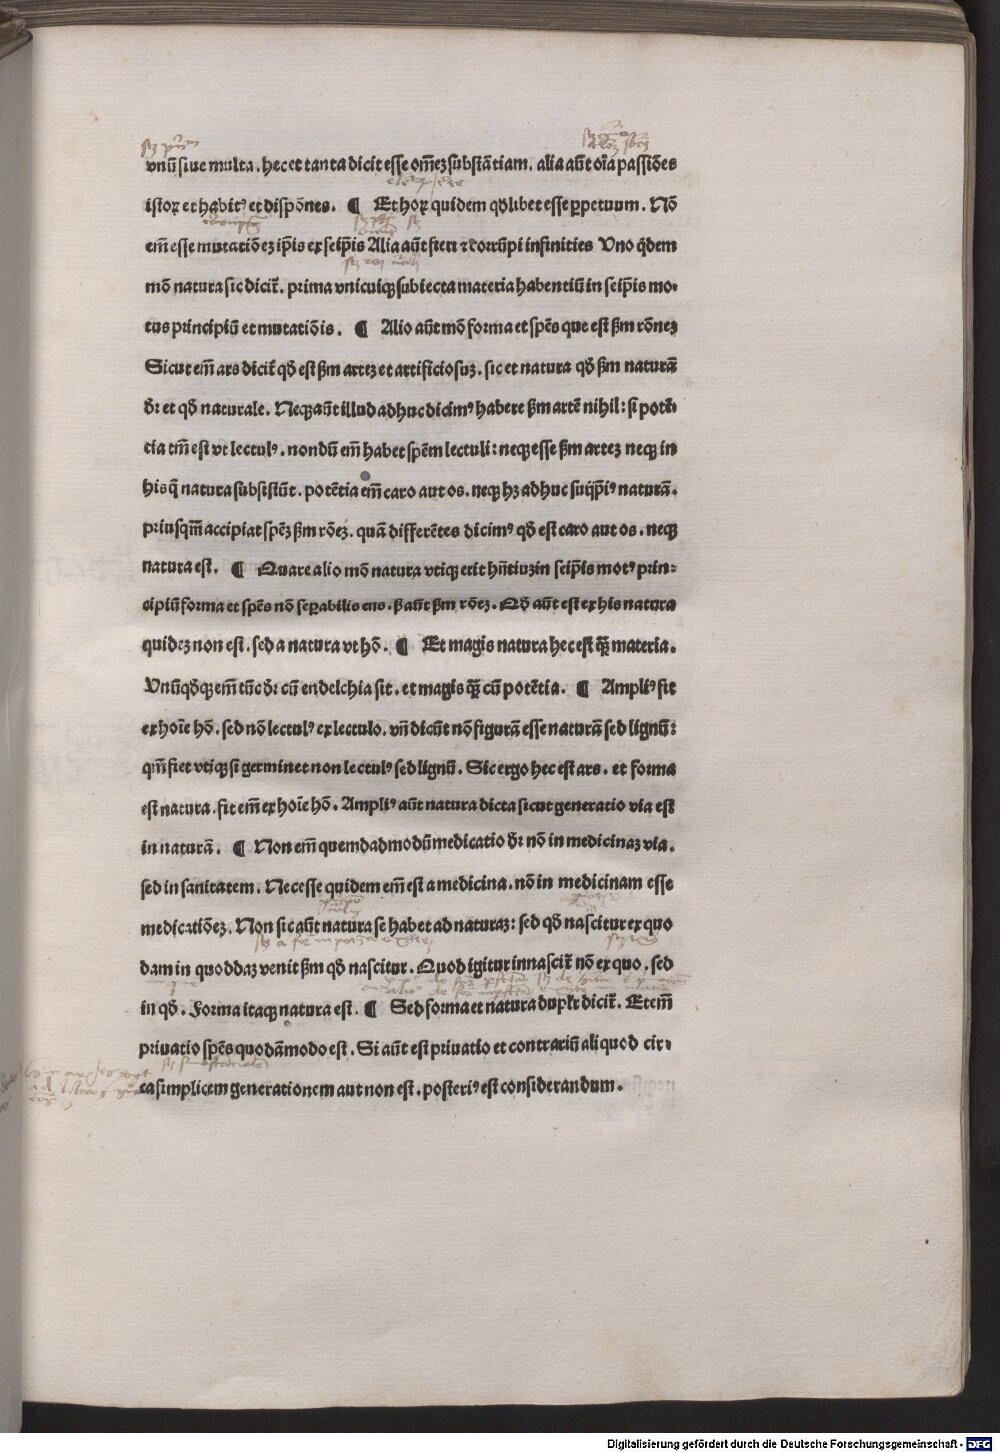 vnū siue multa. hec et tanta dicit esse om̄eꝫ substātiam. alia aūt oīa passiões
istoꝝ et habitꝰ et dispōnes. ¶ Et hoꝝ quidem qđlibet esse ꝑpetuum. Nō
em̄ esse mutatiōeꝫ ip̄is ex seip̄is Alia aūt fieri ⁊ corrūpi infinities Vno q̇dem
mō natura sic dicit̄. prima vnicuiqꝫ subiecta materia habentiū in seip̄is mo-
tus principiū et mutatiōis. ¶ Alio aūt mō forma et sp̄es que est ßm rōneꝫ
Sicut em̄ ars dicit̄ qđ est ßm arteꝫ et artificiosuꝫ. sic et natura qđ ßm naturā
đr et qđ naturale. Neqꝫ aūt illud adhuc dicimꝰ habere ßm artē nihil: si potē-
tia tm̄ est vt lectulꝰ. nondū em̄ habet spēm lectuli: neqꝫ esse ßm arteꝫ neqꝫ in
his q̄ natura subsistūt. potētia em̄ caro aut os. neqꝫ hꝫ adhuc suip̄iꝰ naturā.
priusqm̄ accipiat spēꝫ ßm rōeꝫ. quā differētes dicimꝰ qđ est caro aut os. neqꝫ
natura est. ¶ Quare alio mō natura vtiqꝫ erit hn̄tiuꝫ in seip̄is motꝰ prin-
cipiū forma et sp̄es nō seꝑabilis ens. ß aūt ßm rōeꝫ. Qđ aūt est ex his natura
quideꝫ non est. sed a natura vt hō. ¶ Et magis natura hec est q̄ꝫ materia.
Vnūqđqꝫ em̄ tūc đr cū endelchia sit. et magis q̄ꝫ cū potētia. ¶ Ampliꝰ fit
ex hoīe hō. sed nō lectulꝰ ex lectulo. vn̄ dicūt nō figurā esse naturā sed lignū:
qm̄ fiet vtiqꝫ si germinet non lectulꝰ sed lignū. Sic ergo hec est ars. et forma
est natura. fit em̄ ex hoīe hō. Ampliꝰ aūt natura dicta sicut generatio via est
in naturā. ¶ Non em̄ quemdadmodū medicatio đr nō in medicinaꝫ via.
sed in sanitatem. Necesse quidem em̄ est a medicina. nō in medicinam esse
medicatiōeꝫ. Non sic aūt natura se habet ad naturaꝫ: sed qđ nascitur ex quo
dam in quoddaꝫ venit ßm qđ nascitur. Quod igitur innascit̄ nō ex quo. sed
in qđ. Forma itaqꝫ natura est. ¶ Sed forma et natura duplr̄ dicit̄. Etem̄
priuatio sp̄es quodāmodo est. Si aūt est priuatio et contrariū aliquod cir-
ca simplicem generationem aut non est. posteriꝰ est considerandum.
Digitalisierung gefördert durch die Deutsche Forschungsgemeinschaft - DFG